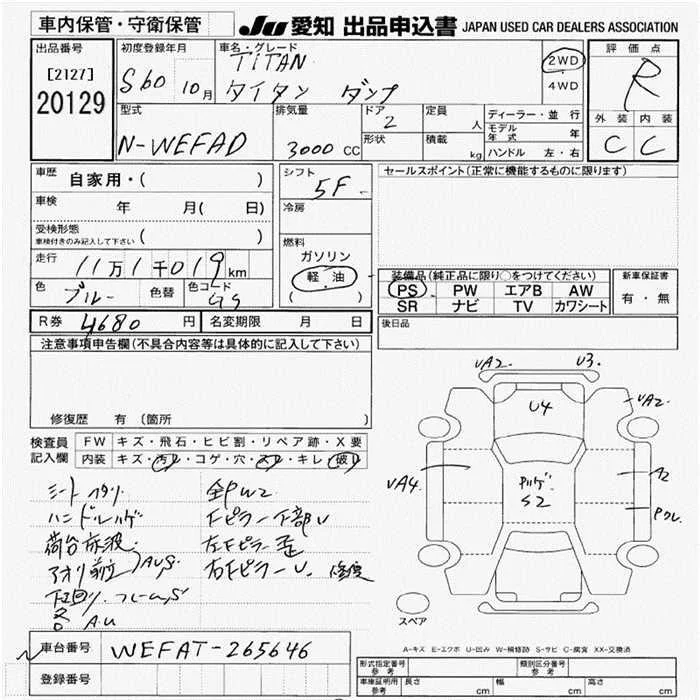 車内保管・守衛保管
JU 愛知 出品申込書 JAPAN USED CAR DEALERS ASSOCIATION
出品番号
[2127]
20129
初度登録年月
S60 10月
車名・グレード
TITAN
タイタン ダンプ
2WD
4WD
評価点
R
外装 内装
C C
型式
N-WEFAD
排気量
3000 CC
ドア
2
形状
定員
人
積載
kg
ディーラー・並行
モデル年式 年
ハンドル 左・右
車歴 自家用・( )
車検 年 月( 日)
受検形態
車検付きのみ記入して下さい ( )
走行 11万1千019km
色 ブルー 色替 色コード
シフト
5F
冷房
燃料
ガソリン
軽油
( )
セールスポイント(正常に機能するものに限ります)
装備品(純正品に限り○をつけてください)
PS PW エアB AW
SR ナビ TV カワシート
新車保証書
有・無
R券 4680円 名変期限 月 日
後日品
注意事項申告欄(不具合内容等は具体的に記入して下さい)
修復歴 有(箇所 )
検査員記入欄
FW キズ・飛石・ヒビ割・リペア跡・X要
内装 キズ・汚レ・コゲ・穴・スレ・キレ・破レ
シートヘタリ
ハンドルハゲ
荷台 波
アオリ AUS
下回り フレームS
各 AU
全PW2
Fピラー下部U
左Fピラー歪
右FピラーU
UA2 U3
U4
UA2
UA4
A2
S2
スペア
A-キズ E-エクボ U-凹み W-補修跡 S-サビ C-腐食 XX-交換済
車台番号 WEFAT-265646
登録番号
形式指定番号
参考
類別区分番号
参考
車庫証明用
参考
長さ cm 幅 cm 高さ cm